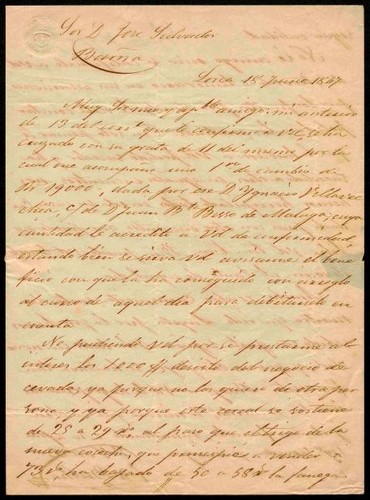 Sor D. José Salvador
Lorca 18 Junio 1847
Muy Sr mio y apble amigo: mi anterior
de 13 del cor.te que le confirmo a V. se ha
cruzado con su grata de 11 del mismo, por la
cual me acompaña una 1ra de cambio de
Rs 19000, dada por ese D. Ygnacio
c/ de D Juan Bta de Malaga, cuya
cantidad le acredito Vd de conformidad,
estando bien se sirva Vd avisarme el bene
ficio con que la ha conseguido con arreglo
al curso de aquel dia para debitarlo en
cuenta.
No pudiendo Vd por si prestarme al
interes los 1.200 ff, desisto del negocio de
cevada, ya porque no las quiero de otra per
sona, y ya porque este cereal se sostiene
de 28 a 29 rs, al paso que el trigo de la
nueva cosecha, que principió a vender a
73 rs, ha bajado de 50 a 58 rs la fanega